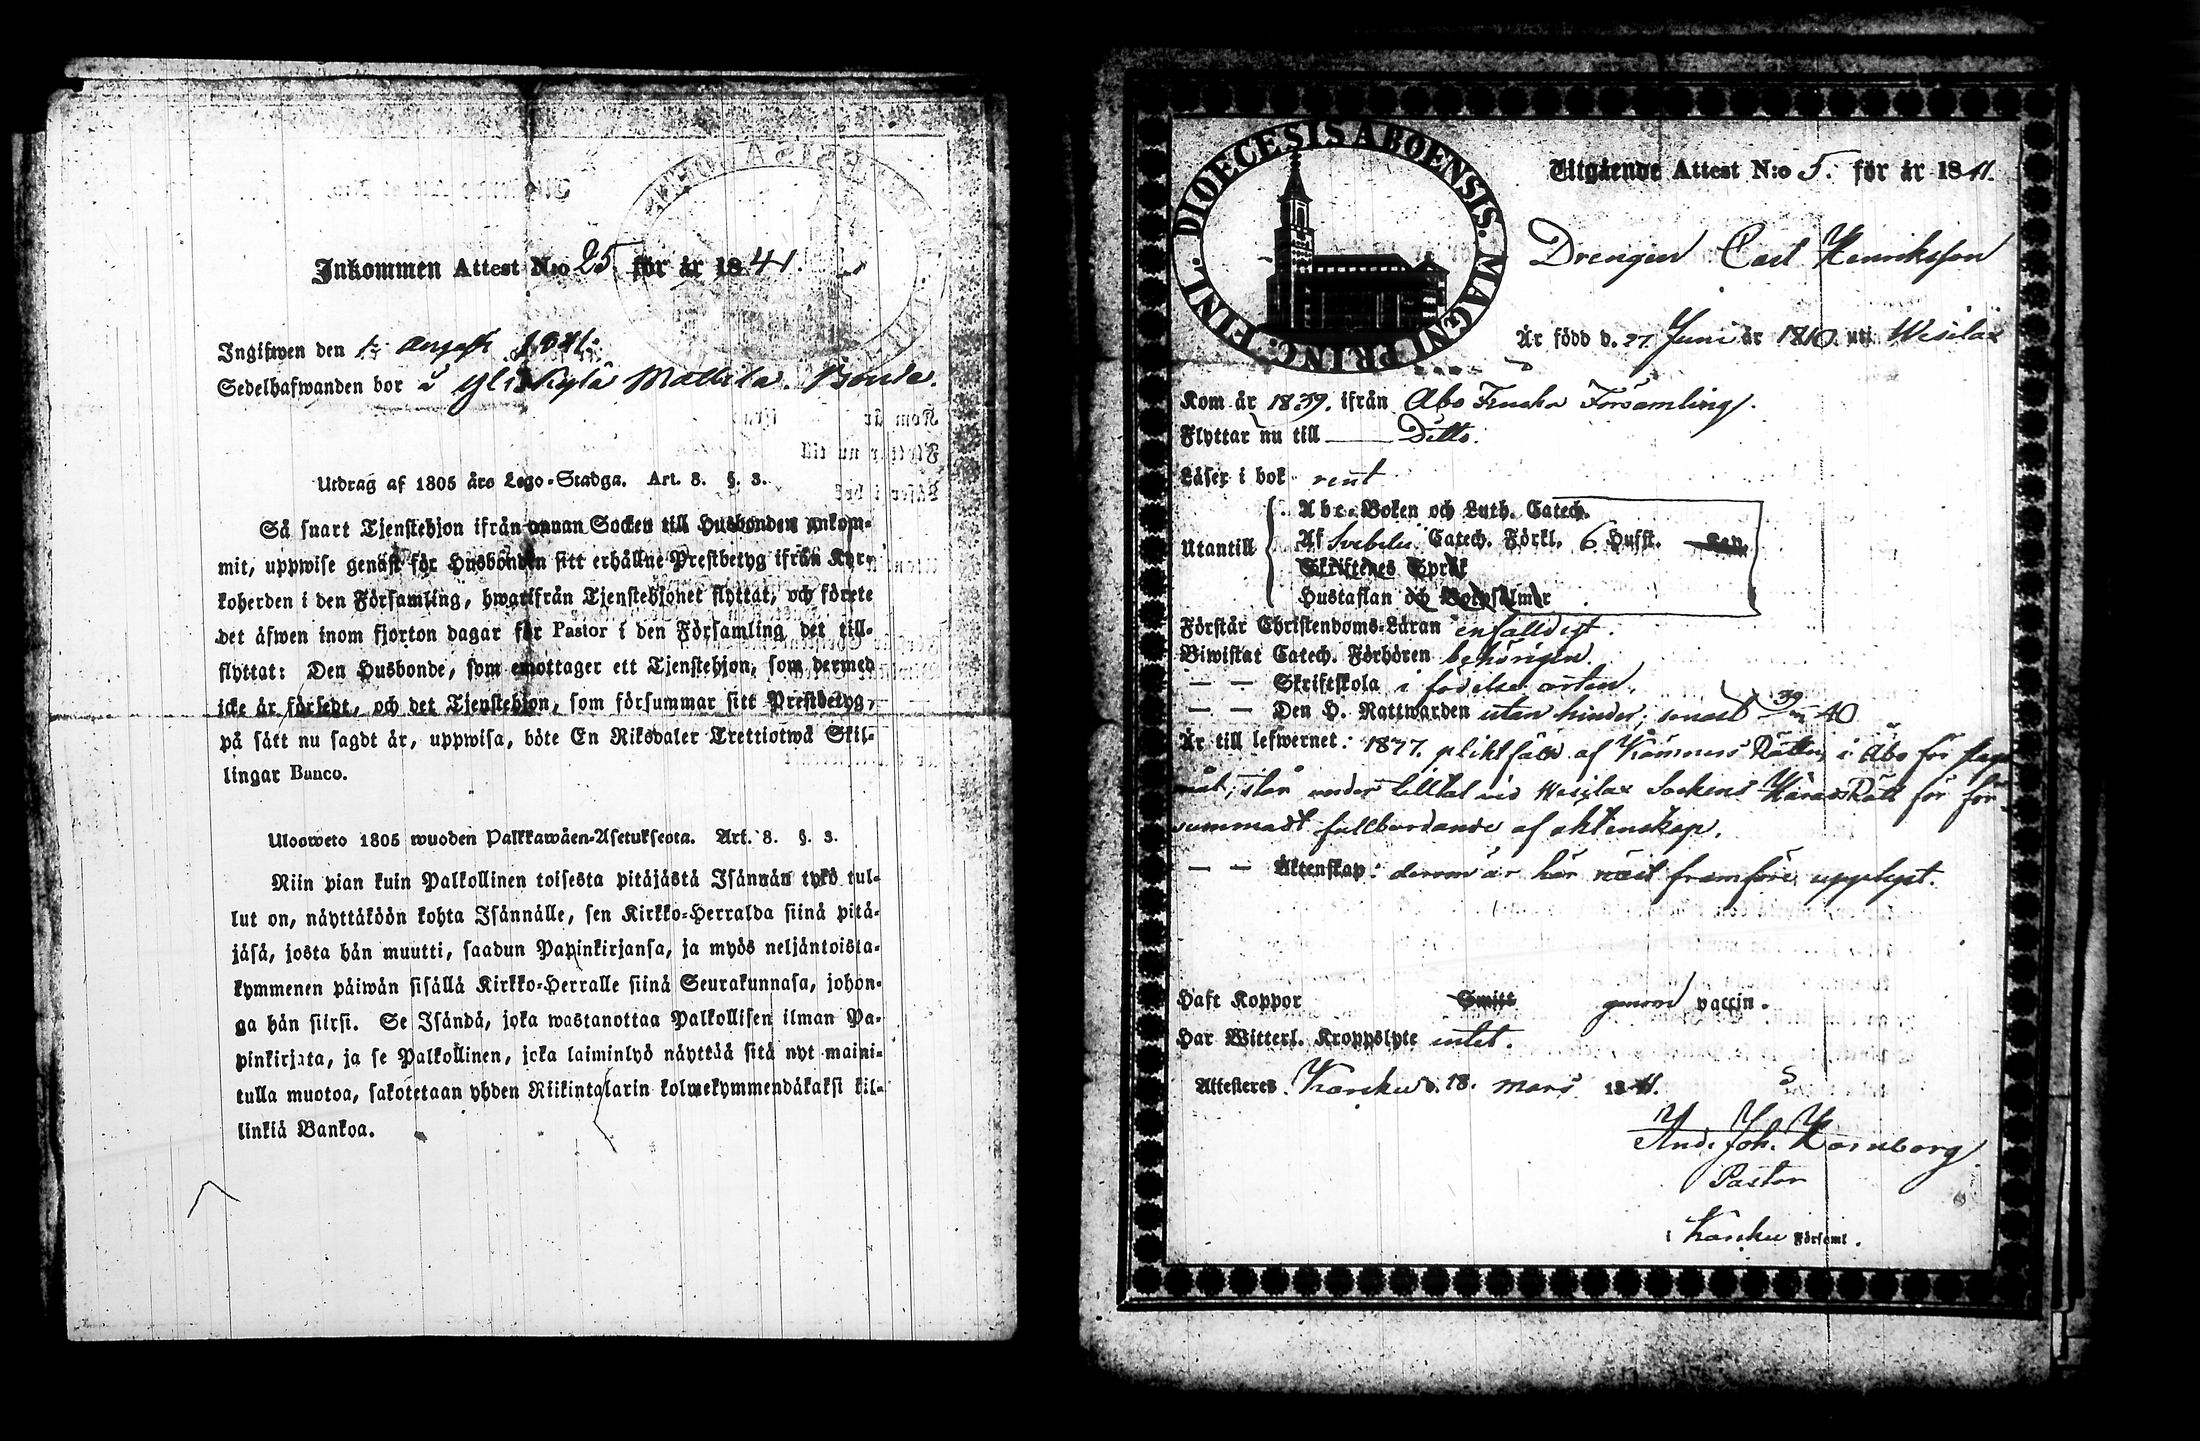 Inkommen Attest N:o 25 för år 1841.
Ingifwen den 1. august 1841.
Sedelhafwanden bor i Yliskylä Mattila Bonde.
Utdrag af 1805 års Lego-Stadga. Art. 8. §. 3.
Så snart Tjenstehjon ifrån annan Socken till Husbonden ankom-
mit, uppwise genast för Husbonden sitt erhållne Prestbetyg ifrån Kyr-
koherden i den Församling, hwarifrån Tjenstehjonet flyttat, och förete
det äfwen inom fjorton dagar för Pastor i den Församling det till-
flyttat: Den Husbonde, som emottager ett Tjenstehjon, som dermed
icke är försedt, och det Tjenstehjon, som försummar sitt Prestbetyg,
på sätt nu sagdt är, uppwisa, böte En Riksdaler Trettiotwå Skil-
lingar Banco.
Ulosweto 1805 wuoden Palkkawäen-Asetuksesta. Art. 8. §. 3.
Niin pian kuin Palkollinen toisesta pitäjästä Isännän tykö tul-
lut on, näyttäköön kohta Isännälle, sen Kirkko-Herralda siinä pitä-
jäsä, josta hän muutti, saadun Papinkirjansa, ja myös neljäntoista-
kymmenen päiwän sisällä Kirkko-Herralle siinä Seurakunnasa, johon-
ga hän siirsi. Se Isändä, joka wastanottaa Palkollisen ilman Pa-
pinkirjata, ja se Palkollinen, joka laiminlyö näyttää sitä nyt maini-
tulla muotoa, sakotetaan yhden Riikintalarin kolmekymmendäkaksi kil-
linkiä Bankoa.
DIOECESIS ABOENSIS. MAGNI PRINC. FINL.
Utgående Attest N:o 5. för år 1841.
Drengen Carl Henriksson
Är född d. 27 Juni år 1810. uti Wesilax
Kom år 1839. ifrån Åbo Finska Församling.
Flyttar nu till Ditto.
Läser i bok rent
Abc-Boken och Luth. Catech.
Utantill Af Svebelii Catech. Förkl. 6 Hufst. Lap.
Skriftenes Språk
Hustaflan och Botpsalmer
Förstår Christendoms-Läran enfalldigt.
Biwistat Catech. Förhören behörigen.
— — Skriftskola i födelse orten.
— — Den H. Nattwarden utan hinder, senast 40
Är till lefwernet: pliktfäld af Kämners Rätten i Åbo för
står under tilltal vid Wesilax Sockens Härads Rätt för för-
summadt fullbordande af äktenskap.
— — Äktenskap: derom är här näst framföre upplyst.
Haft Koppor Smitt genom vaccin.
Har Witterl. Kroppslyte intet.
Attesteres Karcku d. 18. mars 1841.
And. Joh. Hornborg
Pastor
i Karcku Församl.